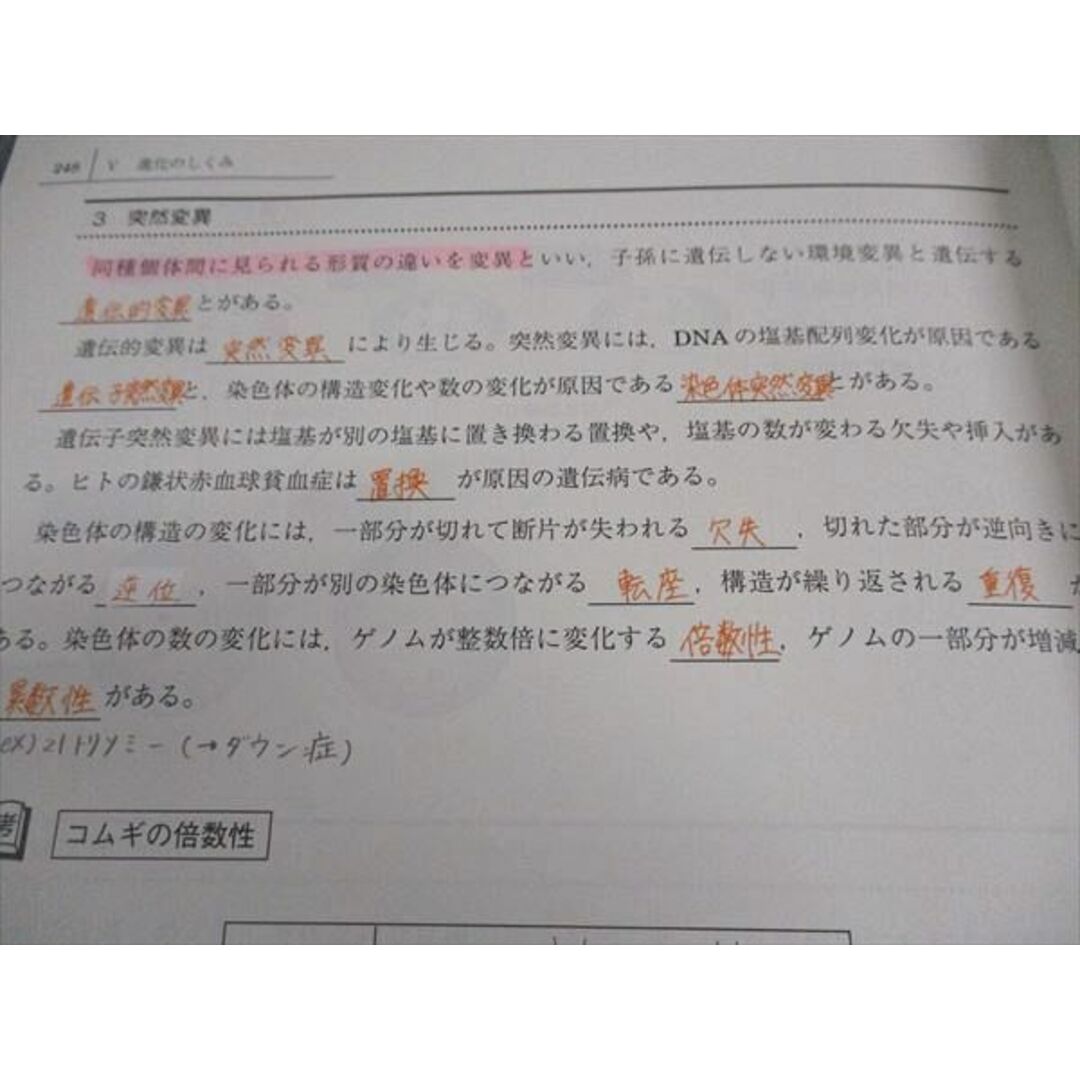 248 V 進化のしくみ
3 突然変異
同種個体間に見られる形質の違いを変異といい，子孫に遺伝しない環境変異と遺伝する
遺伝的変異とがある。
遺伝的変異は 突然変異 により生じる。突然変異には，DNAの塩基配列変化が原因である
遺伝子突然変異と，染色体の構造変化や数の変化が原因である染色体突然変異とがある。
遺伝子突然変異には塩基が別の塩基に置き換わる置換や，塩基の数が変わる欠失や挿入があ
る。ヒトの鎌状赤血球貧血症は 置換 が原因の遺伝病である。
染色体の構造の変化には，一部分が切れて断片が失われる 欠失 ，切れた部分が逆向きに
つながる 逆位 ，一部分が別の染色体につながる 転座 ，構造が繰り返される 重複 が
ある。染色体の数の変化には，ゲノムが整数倍に変化する 倍数性 ，ゲノムの一部分が増減
異数性 がある。
ex) 21トリソミー (→ダウン症)
考 コムギの倍数性